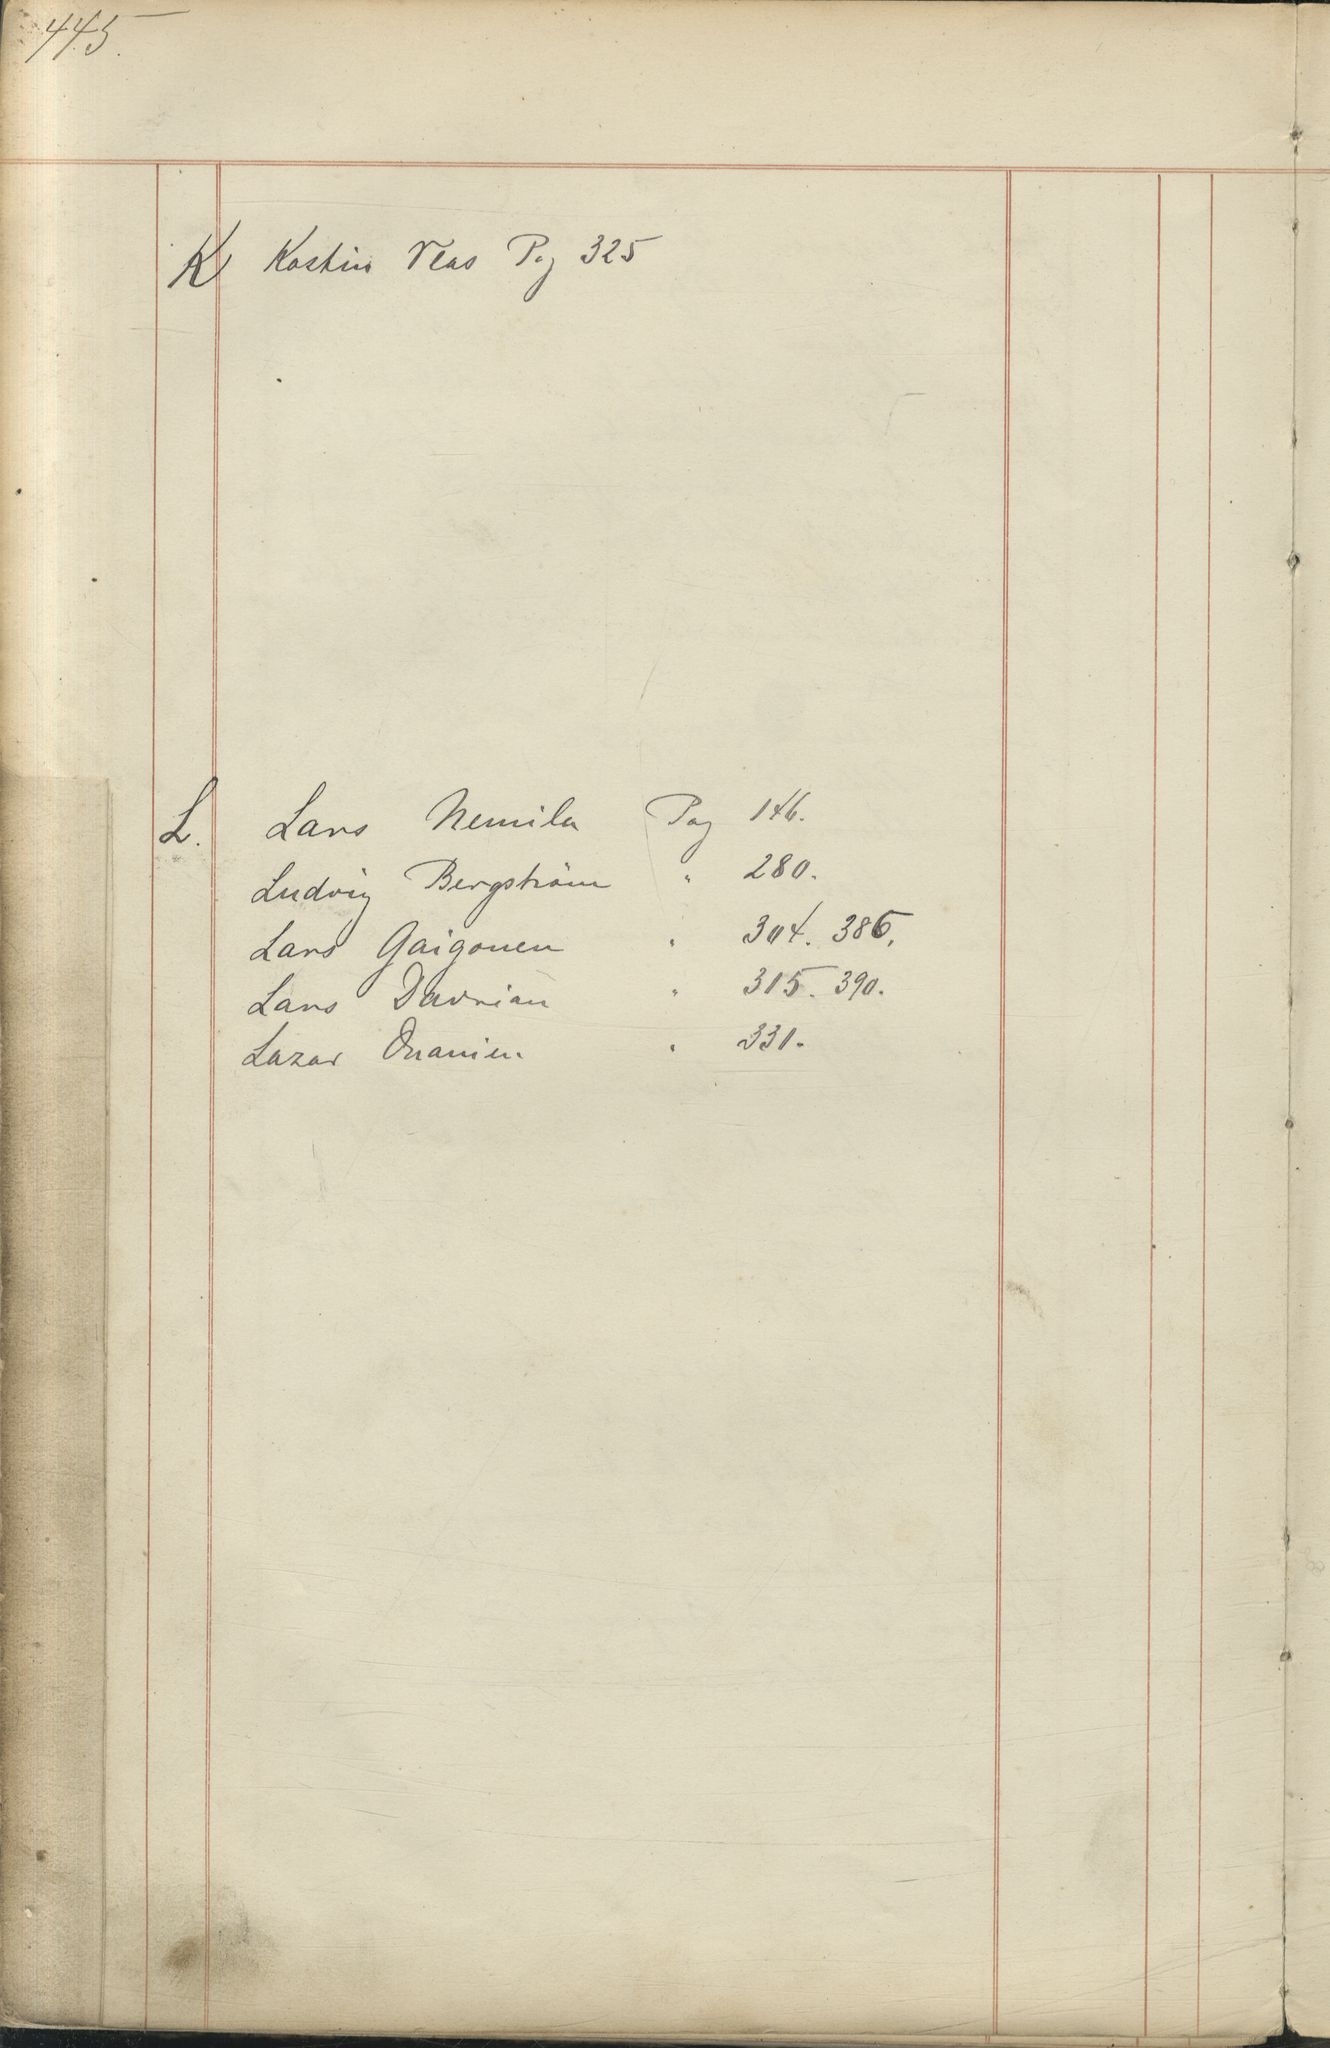 445.
K Kostin Vlas Pag 325
L. Lars Nemila Pag 146.
Ludvig Bergström " 280.
Lars Gaigonen " 304. 386.
Lars " 315. 390.
Lazar Onanien " 331.